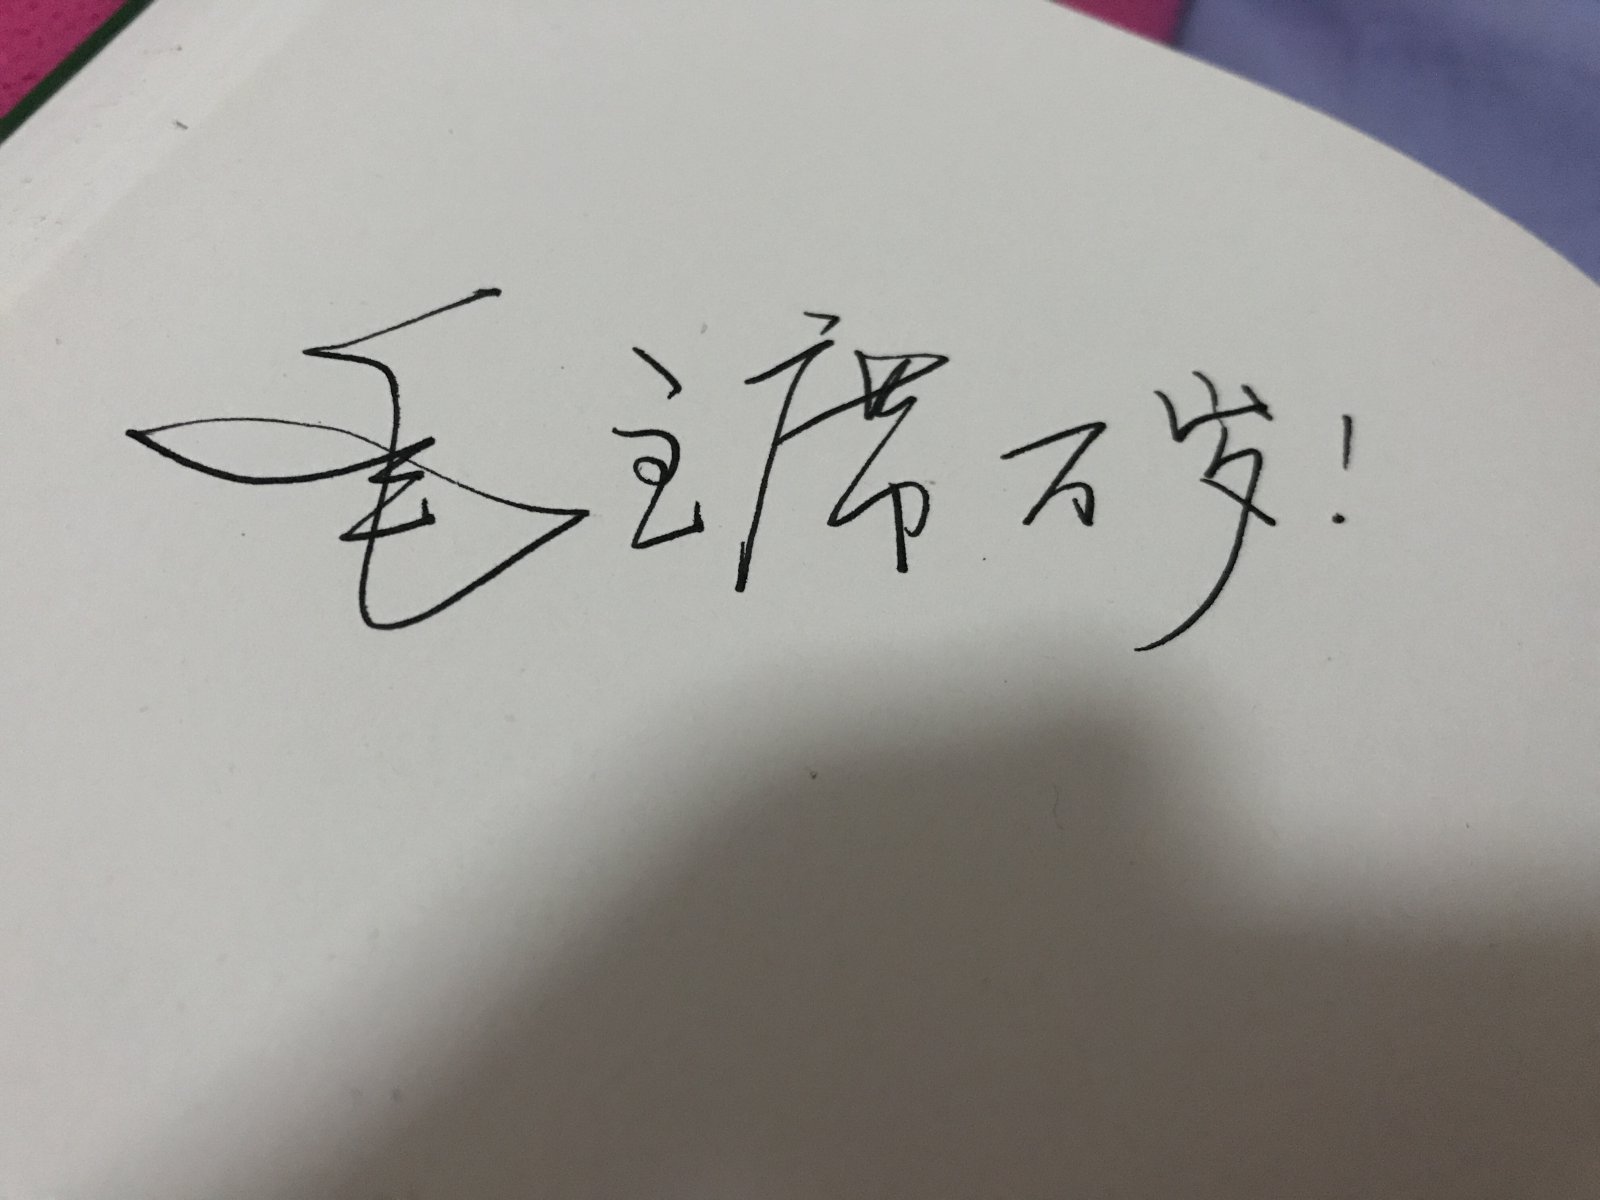 毛主席万岁!